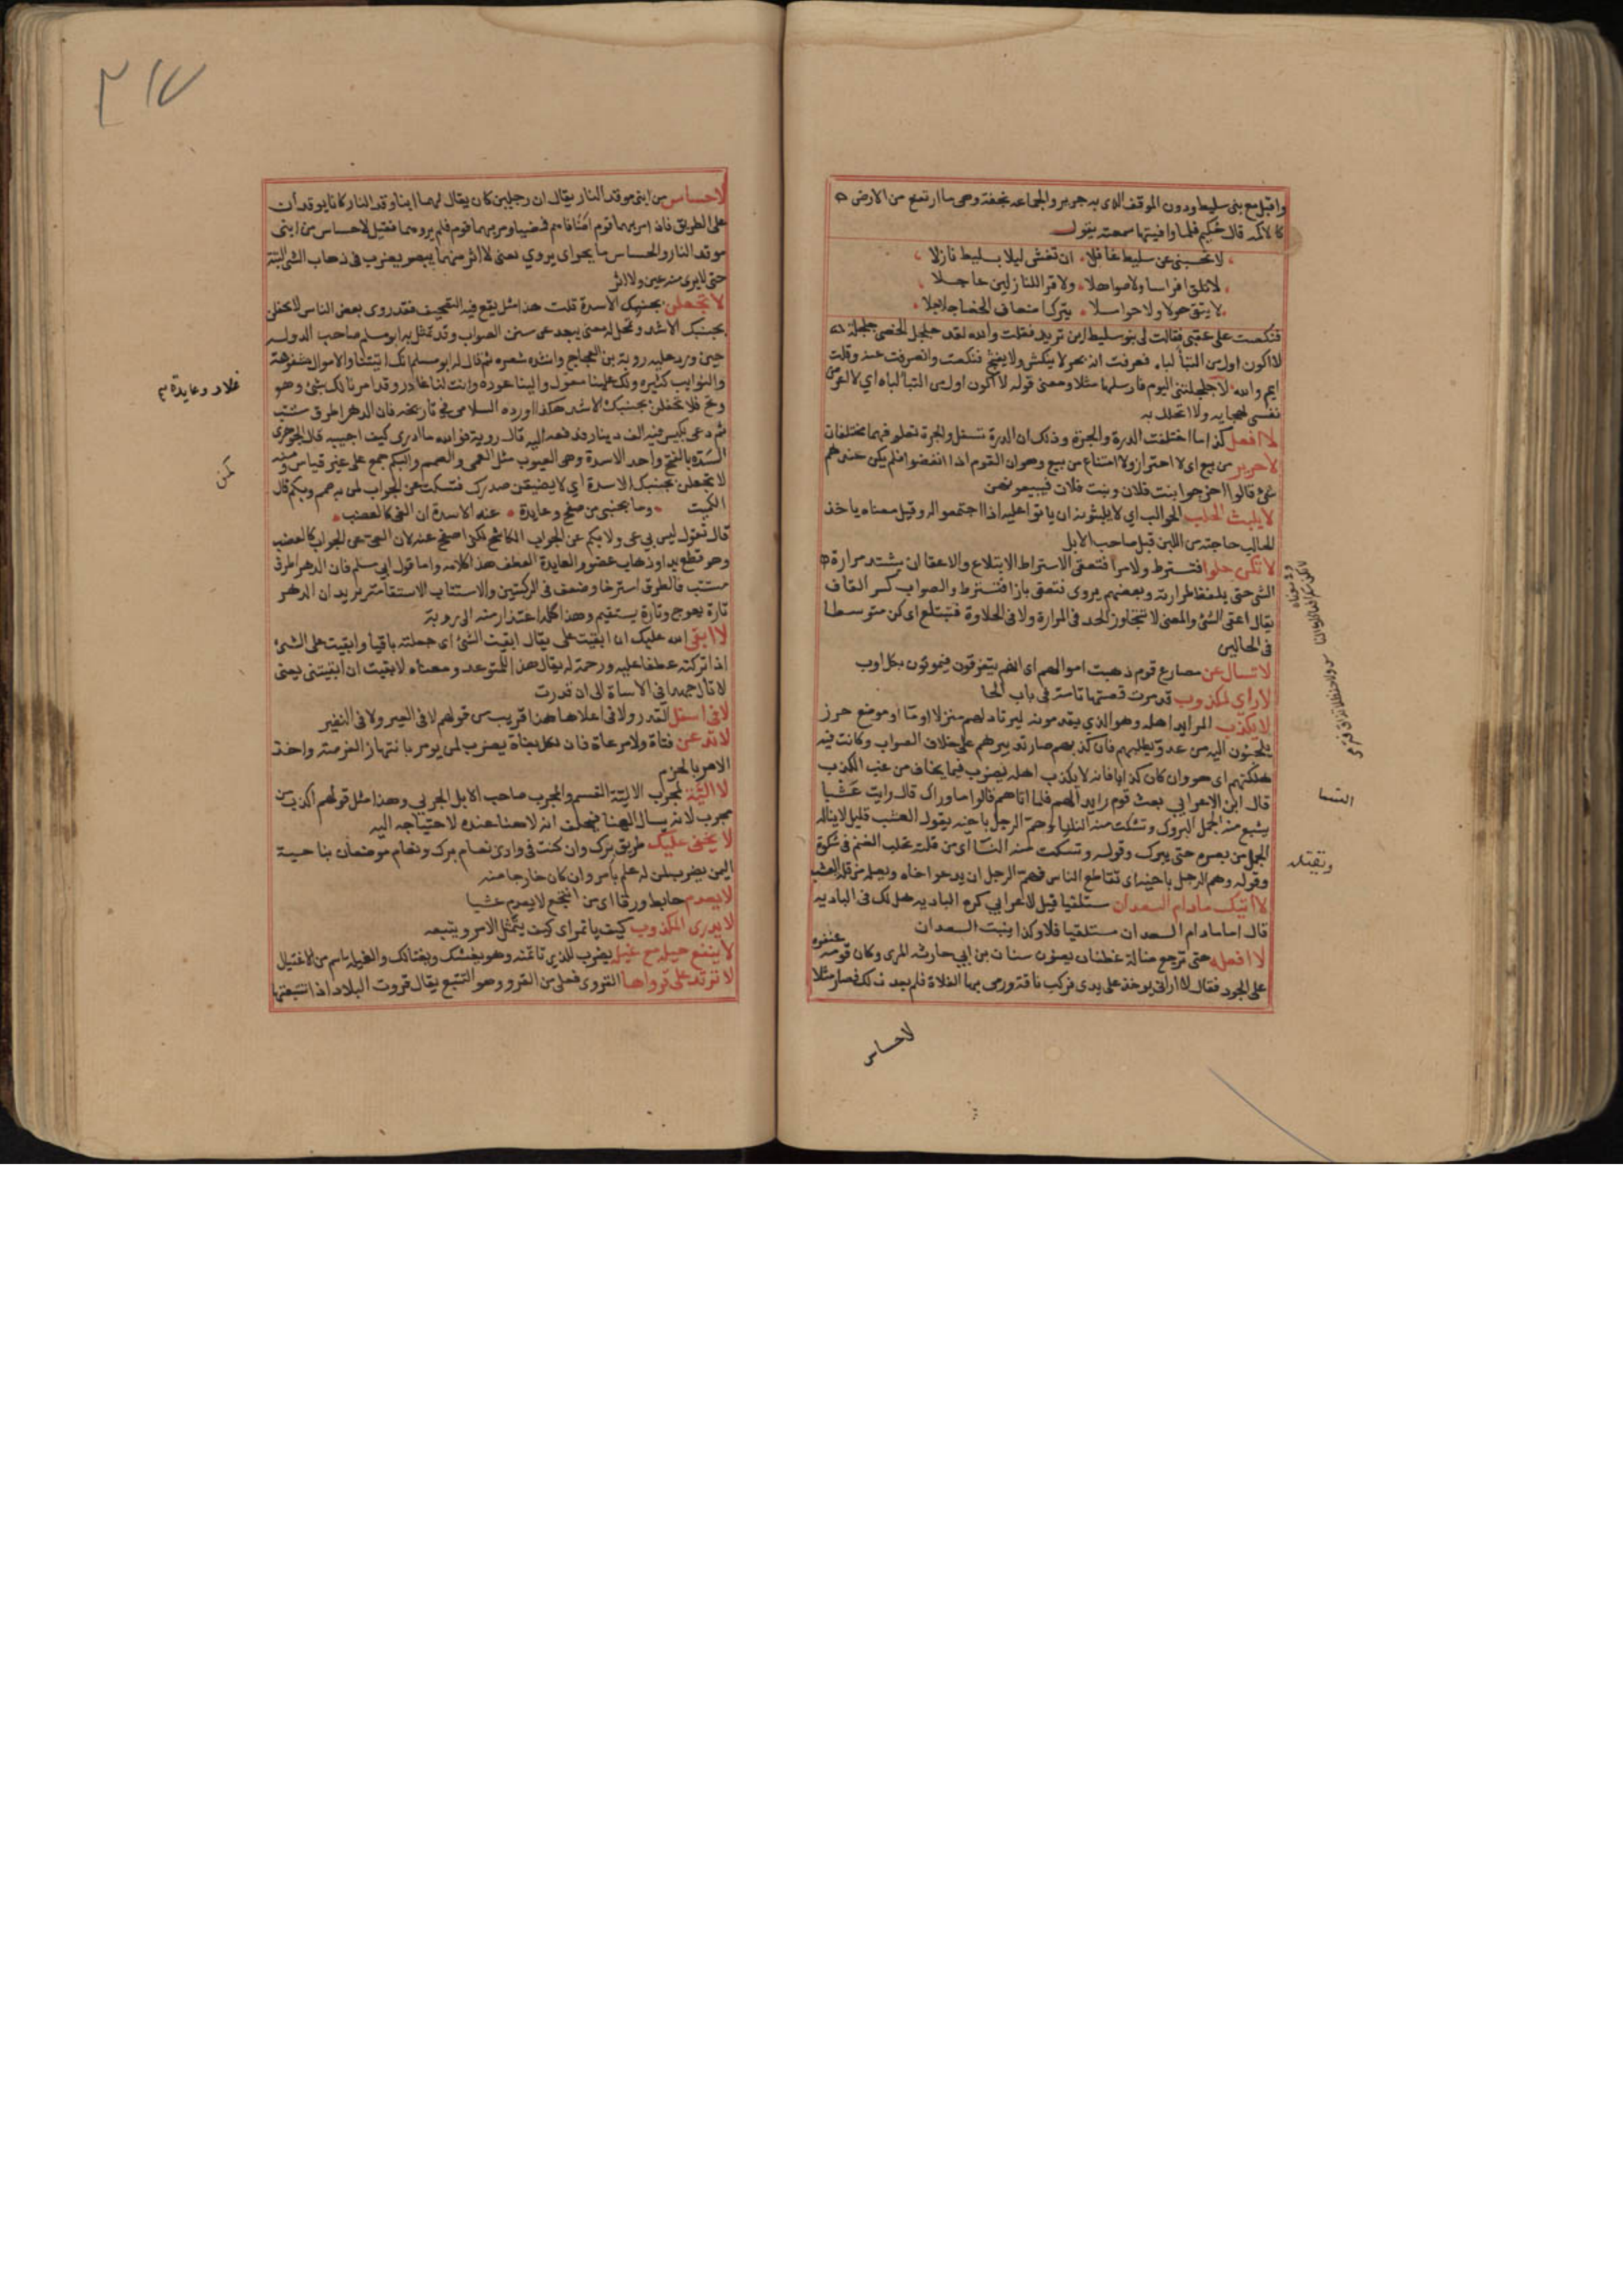 واقبل مع بنى سليط ودون الموقف الذى به جرير والجماعه نجفة وهى ما ارتفع من الارض
كالاكمه قال حكيم فلما وافيتها سمعته يقول
لا تحسبنى عن سليط غافلا ان تغش ليلا بسليط نازلا
لا تلق افراسا ولا صواهلا ولا قرا للنازلين عاجلا
لا يتق حولا ولا حواملا يترك اصفان الخصا جلاجلا
فنكصت على عقبى فقالت لى بنو سليط اين تريد فقلت والله لقد جلجل الخصى جلجلة
لا اكون اول من التبأ لباه فعرفت انه بحر لا ينكش ولا ينثج فنكصت وانصرفت عنه وقلت
ايم والله لا جلجلتنى اليوم فارسلها مثلا ومعنى قوله لا اكون اول من التبا لباه اى لا اعرض
نفسى لهجايه ولا اتحلك به
لا افعل كذا ما اختلفت الدرة والجرة وذلك ان الدرة تسفل والجرة تعلو فهما مختلفان
لا حريز من بيع اى لا احتراز ولا امتناع من بيع وهو ان القوم اذا انفضوا فلم يكن عندهم
شئ قالوا اخرجوا بنت فلان وبنت فلان فيبيعونهن
لا يلبث الحلب الحوالب اى لا يلبثونه ان ياتوا عليه اذا اجتمعوا له وقيل معناه ياخذ
الحالب حاجته من اللبن قبل صاحب الابل
لا تكن حلوا فتسترط ولا مرا فتعقى الاستراط الابتلاع والاعقا ان يشتد مرارة
الشى حتى يلفظ لمرارته وبعضهم يروى فتعقى بازا فتسترط والصواب كسر القاف
يقال اعقى الشئ والمعنى لا تتجاوز الحد فى المرارة ولا فى الحلاوة فتبتلع اى كن متوسطا
فى الحالين
لا تسال عن مصارع قوم ذهبت اموالهم اى انهم يتفرقون فيموتون بكل اوب
لا راى لمكذوب قد مرت قصتها تامة فى باب الحا
لا يكذب الرايد اهله وهو الذى يقدمونه ليرتاد لهم منزلا او ما او موضع حرز
يلجئون اليه من عدو يطلبهم فان كذبهم صار تدبيرهم على خلاف الصواب وكانت فيه
هلكتهم اى هو وان كان كذابا فانه لا يكذب اهله يضرب فيما يخاف من غب الكذب
قال ابن الاعرابى بعث قوم رايدا لهم فلما اتاهم قالوا ما وراك قال رايت عشبا
يشبع منه الجمل البروك وتشكت منه النسا وهم الرجل باخيه يقول العشب قليل لا يناله
الجمل من قصره حتى يبرك وقوله وتشكت منه النسا اى من قلته تحلب الغنم فى شكوة
وقوله وهم الرجل باخيه اى تقاطع الناس فهم الرجل ان يدعو اخاه ويصله من قلة العشب
لا اتيك مادام السعدان مستلقيا قيل لاعرابى كره الباديه هل لك فى الباديه
قال اما مادام السعدان مستلقيا فلا وكذا ينبت السعدان
لا افعله حتى ترجع ضالة غطفان يعنون سنان بن ابى حارثه المرى وكان قومه عنفوه
على الجود فقال لا ارانى يوخذ على يدى فركب ناقته ورمى بها الفلاة فلم يعد فى لك فصار مثلا
النسا
ويقتله
لا حساس
٢١٧
لا حساس من ابنى موقد النار يقال ان رجلين كان يقال لهما ابنا موقد النار كانا يوقدان
على الطريق فاذا مر بهما قوم اضافاهم فمضيا ومر بهما قوم فلم يروهما فقيل لا حساس من ابنى
موقد النار والحساس ما يحس اى يروى يعنى لا اثر منهما يبصر يضرب فى ذهاب الشى البتة
حتى لا يرى منه عين ولا اثر
لا تجعلن بجنبك الاسدة قلت هذا مثل يقع فيه التصحيف فقد روى بعض الناس لا تحفلن
بجنبك الاشد وتمحل له معنى يبعد عن سنن الصواب وقد تمثل به ابو مسلم صاحب الدوله
حين ورد عليه روبة بن العجاج وانشده شعره ثم قال له ابو مسلم انك اتيتنا والاموال مشفوهة
والنوايب كثيرة ولك علينا معول والينا عودة وانت لنا عاذر وقد امرنا لك بشئ وهو
وتح فلا تجعلن بجنبك الاشد هكذا اورده السلامى فى تاريخه فان الدهر اطرق مستتب
ثم دعى بكيس فيه الف دينار فدفعه اليه قال روبة فوالله ما ادرى كيف اجيبه قال الجوهرى
السدة بالفتح واحد الاسدة وهى العيوب مثل العمى والصمم والبكم جمع على غير قياس ومنه
لا تجعلن بجنبك الاسدة اى لا يضيقن صدرك فتسكت عن الجواب كمن به صمم وبكم قال
الكميت وما بجنبى من صفح وعايدة عند الاسدة ان العى كالعضب
قال تقول ليس بى عى ولا بكم عن الجواب الكاشح لكنى اصفح عنه لان العى عن الجواب كالعضب
وهو قطع يد او ذهاب عضو والعايدة العطف هذا كلامه واما قول ابى مسلم فان الدهر اطرق
مستتب فالطرق استرخا وضعف فى الركبتين والاستتاب الاستقامة يريد ان الدهر
تارة يعوج وتارة يستقيم وهذا كله اعتذار منه الى روبة
لا ابقى الله عليك ان ابقيت على يقال ابقيت الشئ اى جعلته باقيا وابقيت على الشئ
اذا تركته عطفا عليه ورحمة له يقال هذا للمتوعد ومعناه لا بقيت ان ابقيتنى يعنى
لا تال جهدا فى الاساة الى ان قدرت
لا فى اسفل القدر ولا فى اعلاها هذا قريب من قولهم لا فى العير ولا فى النفير
لا تدعن فتاة ولا مرعاة فان لكل بغاة يضرب لمن يومر بانتهاز الفرصة واخذ
الامر بالحزم
لا الية لمجرب الالية القسم والمجرب صاحب الابل الجربى وهذا مثل قولهم اكذب من
مجرب لانه يسال الهنا فيحلف انه لا هنا عنده لاحتياجه اليه
لا يخفى عليك طريق برك وان كنت فى وادى نعام برك ونعام موضعان بناحية
اليمن يضرب لمن له علم بامر وان كان خارجا منه
لا يعدم خابط ورقا اى من انتجع لا يعدم عشبا
لا يدرى المكذوب كيف ياتمر اى كيف يمتثل الامر ويتبعه
لا ينفع حيلة مع غيلة يضرب للذى تاتمنه وهو يغشك ويغتالك والغيلة اسم من الاغتيال
لا ترتد على قرواها القروى فعلى من القرو وهو التتبع يقال قروت البلاد اذا تتبعتها
كمن